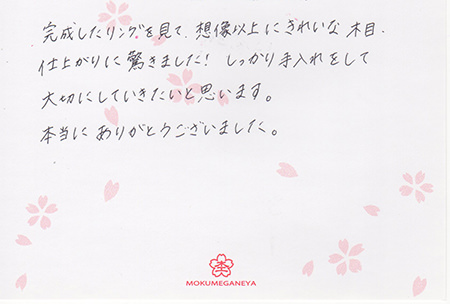 完成したリングを見て、想像以上にきれいな木目、
仕上がりに驚きました! しっかり手入れをして
大切にしていきたいと思います。
本当にありがとうございました。
MOKUMEGANEYA